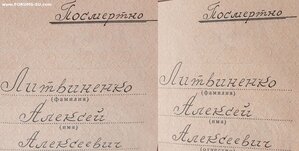 www.FORUMS-SU.com
Посмертно
Литвиненко
(фамилия)
Алексей
(имя)
Алексеевич
Посмертно
Литвиненко
(фамилия)
Алексей
(имя)
Алексеевич